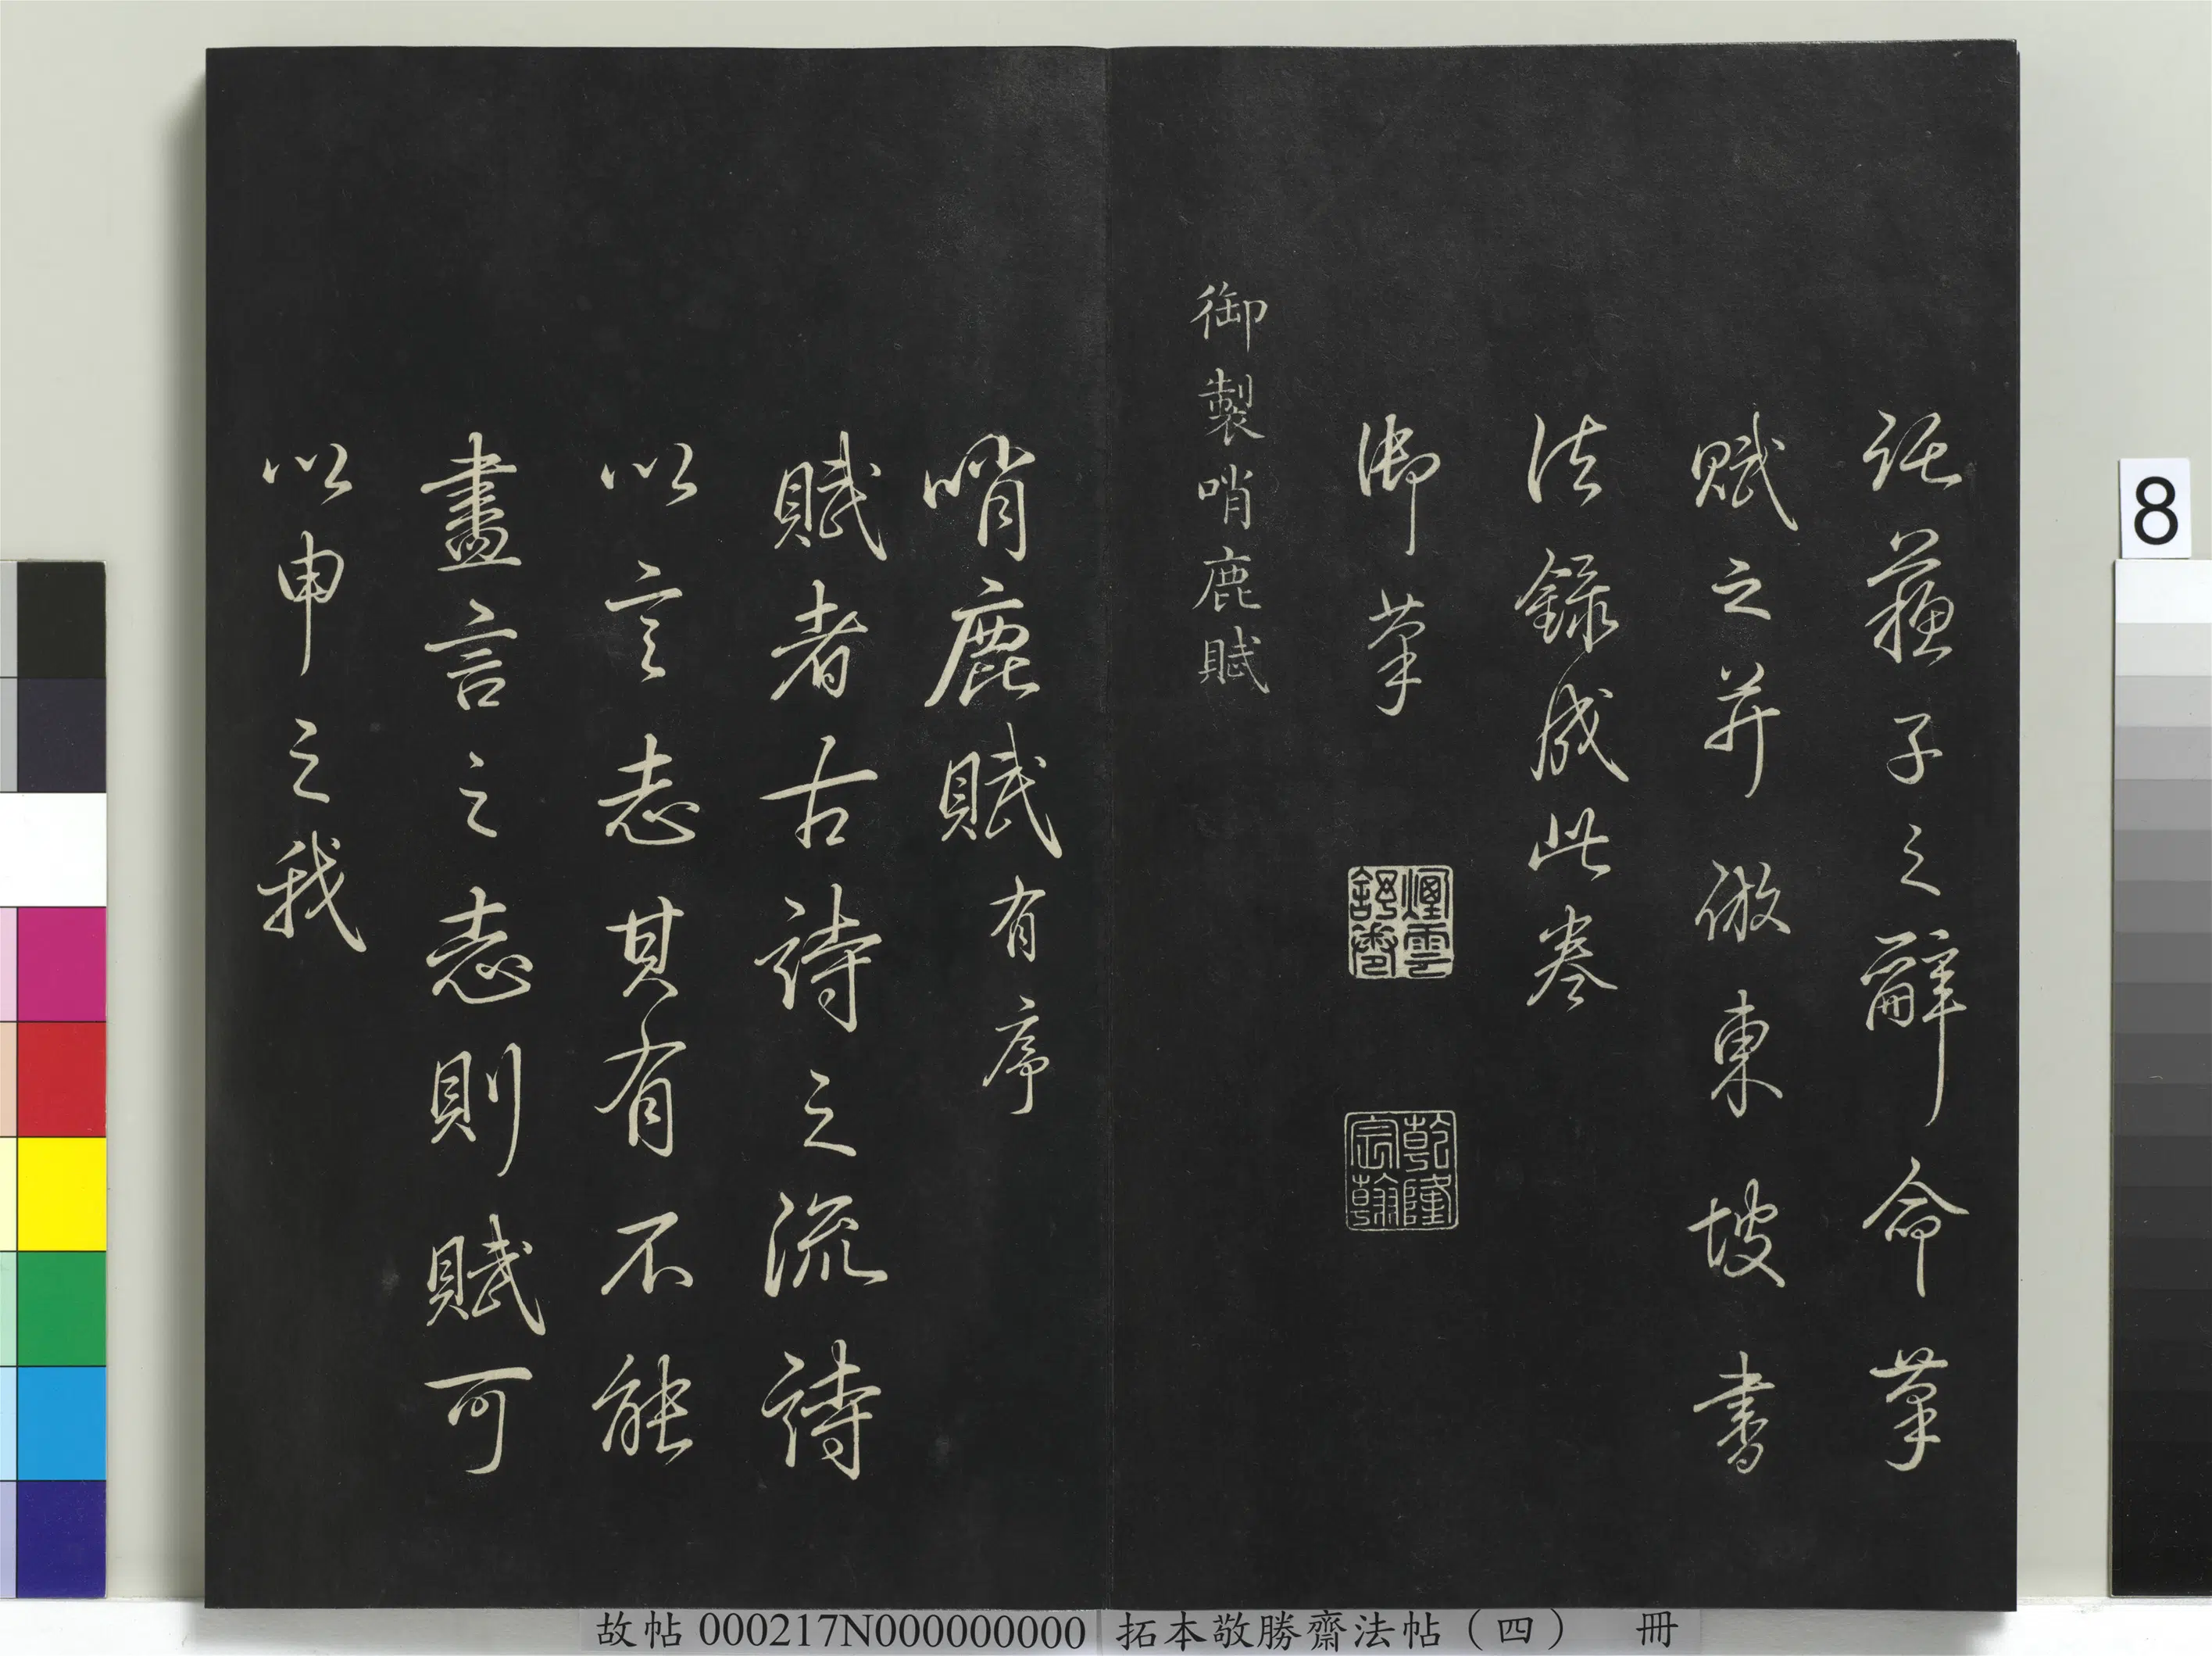 託蘇子之辭命筆
賦之并倣東坡書
法錄成此卷
御筆
煙雲
舒卷
乾隆
宸翰
御製哨鹿賦
哨鹿賦有序
賦者古詩之流詩
以言志其有不能
盡言之志則賦可
以申之我
8
故帖 000217N000000000 拓本敬勝齋法帖（四） 冊